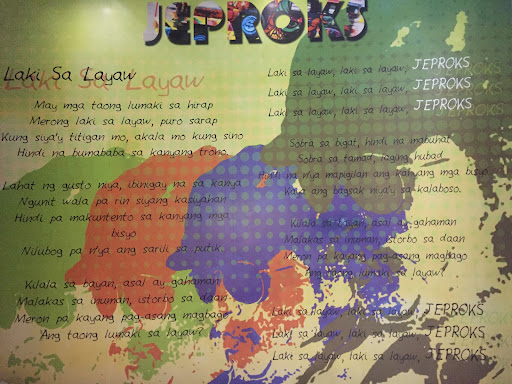 JEPROKS
Laki Sa Layaw
Laki Sa Layaw
May mga taong lumaki sa hirap
Merong laki sa layaw, puro sarap
Kung siya'y titigan mo, akala mo kung sino
Hindi na bumababa sa kanyang trono.
Lahat ng gusto niya, ibinigay na sa kanya
Ngunit wala pa rin siyang kasiyahan
Hindi pa makuntento sa kanyang mga
bisyo
Nilubog pa n'ya ang sarili sa putik.
Kilala sa bayan, asal ay gahaman
Malakas sa inuman, istorbo sa daan
Meron pa kayang pag-asang magbago
Ang taong lumaki sa layaw?
Laki sa layaw, laki sa layaw, JEPROKS
Laki sa layaw, laki sa layaw, JEPROKS
Laki sa layaw, laki sa layaw, JEPROKS
Sobra sa bigat, hindi na mabuhat
Sobra sa tamad, laging hubad
Hindi na n'ya mapigilan ang kanyang mga bisyo
Kaya ang bagsak niya'y sa kalaboso.
Kilala sa bayan, asal ay gahaman
Malakas sa inuman, istorbo sa daan
Meron pa kayang pag-asang magbago
Ang taong lumaki sa layaw?
Laki sa layaw, laki sa layaw, JEPROKS
Laki sa layaw, laki sa layaw, JEPROKS
Laki sa layaw, laki sa layaw, JEPROKS